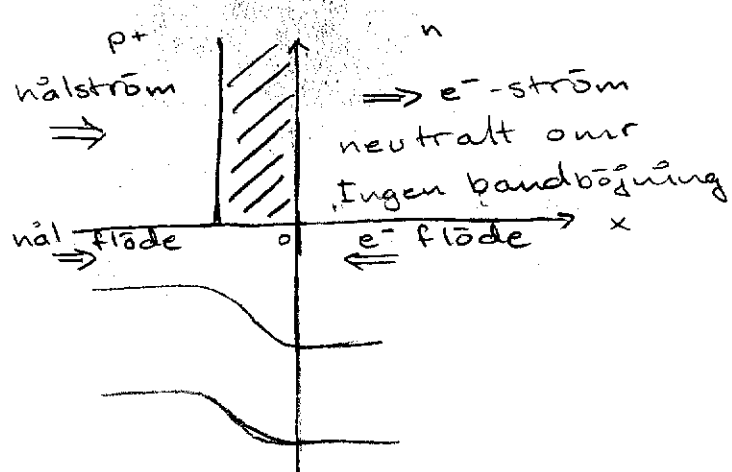 p+ n
hålström ⇒ e⁻-ström
⇒ neutralt omr
Ingen bandböjning
hål flöde 0 e⁻ flöde x
⇒ ⇐